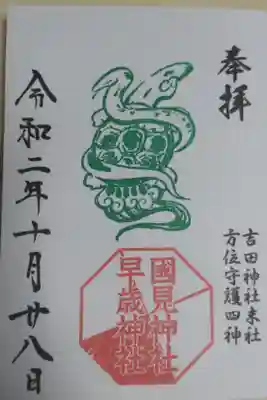 奉拝
吉田神社末社
方位守護四神
國見神社
早歳神社
令和二年十月廿八日